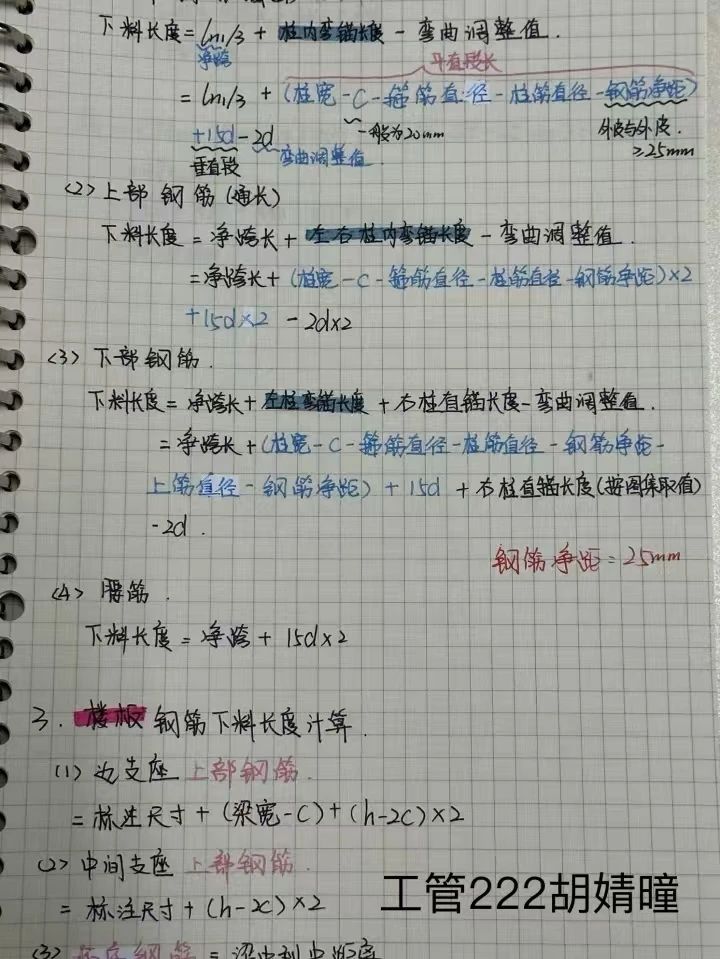 下料长度=ln1/3 + 柱内弯锚长度 - 弯曲调整值.
净跨
平直段长
= ln1/3 + (柱宽-C-箍筋直径-柱筋直径-钢筋净距)
+15d-2d
一般为20mm
外皮与外皮.
≥25mm
垂直段
弯曲调整值
(2)上部钢筋(通长)
下料长度 = 净跨长+左右柱内弯锚长度-弯曲调整值.
=净跨长+(柱宽-C-箍筋直径-柱筋直径-钢筋净距)×2
+15d×2 -2d×2
(3)下部钢筋.
下料长度= 净跨长+左柱弯锚长度+右柱直锚长度-弯曲调整值.
=净跨长+(柱宽-C-箍筋直径-柱筋直径-钢筋净距-
上筋直径-钢筋净距)+15d+右柱直锚长度(按图集取值)
-2d.
钢筋净距=25mm
(4)腰筋.
下料长度=净跨+15d×2
3.楼板钢筋下料长度计算.
(1)边支座上部钢筋.
=标注尺寸+(梁宽-C)+(h-2C)×2
(2)中间支座上部钢筋.
=标注尺寸+(h-2C)×2
工管222胡婧曈
(3)
钢筋=梁中到中距离